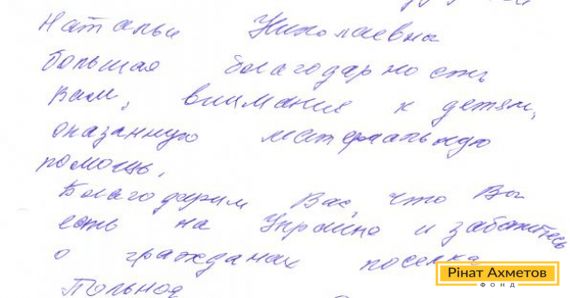 Натальи Николаевны
большая благодарность
Вам, внимание к детям,
оказанную материальную
помощь.
Благодарим Вас, что Вы
есть на Украине и заботитесь
о гражданах поселка
Польное
Рінат Ахметов
ФОНД